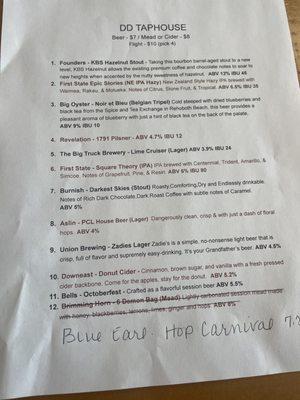 DD TAPHOUSE
Beer - $7 / Mead or Cider - $8
Flight - $10 (pick 4)
1. Founders - KBS Hazelnut Stout - Taking this bourbon barrel-aged stout to a new
level, KBS Hazelnut allows the existing premium coffee and chocolate notes to soar to
new heights when accented by the nutty sweetness of hazelnut. ABV 12% IBU 45
2. First State Epic Stories (NE IPA Hazy) New Zealand Style Hazy IPA brewed with
Waimea, Rakau, & Motueka; Notes of Citrus, Stone Fruit, & Tropical. ABV 6.5% IBU 35
3. Big Oyster - Noir et Bleu (Belgian Tripel) Cold steeped with dried blueberries and
black tea from the Spice and Tea Exchange in Rehoboth Beach, this beer provides a
pleasant aroma of blueberry with just a hint of black tea on the back of the palate.
ABV 9% IBU 10
4. Revelation - 1791 Pilsner - ABV 4.7% IBU 12
5. The Big Truck Brewery - Lime Cruiser (Lager) ABV 3.9% IBU 24
6. First State - Square Theory (IPA) IPA brewed with Centennial, Trident, Amarillo, &
Simcoe. Notes of Grapefruit, Pine, & Resin. ABV 6% IBU 80
7. Burnish - Darkest Skies (Stout) Roasty,Comforting,Dry and Endlessly drinkable.
Notes of Rich Dark Chocolate,Dark Roast Coffee with subtle notes of Caramel.
ABV 6%
8. Aslin - PCL House Beer (Lager) Dangerously clean, crisp & with just a dash of floral
hops. ABV 4%
9. Union Brewing - Zadies Lager Zadie's is a simple, no-nonsense light beer that is
crisp, full of flavor and supremely easy-drinking. It's your Grandfather's beer. ABV 4.5%
10. Downeast - Donut Cider - Cinnamon, brown sugar, and vanilla with a fresh pressed
cider backbone. Come for the apples, stay for the donut. ABV 5.2%
11. Bells - Octoberfest - Crafted as a flavorful session beer ABV 5.5%
12. Brimming Horn - 6 Demon Bag (Mead) Lightly carbonated session mead made
with honey, blackberries, lemons, limes, ginger and hops. ABV 6%
Blue Earl - Hop Carnival 7.2